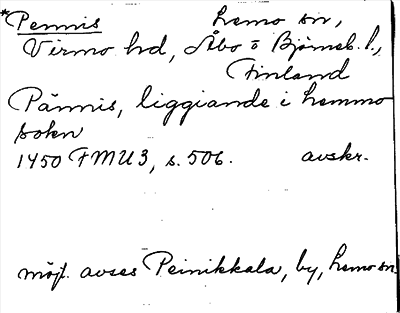 *Pennis Lemo sn,
Virmo hd, Åbo o Björneb. l.,
Finland
Pännis, liggiande i Lemmo
sokn
1450 FMU3, s. 506. avskr.
möjl. avses Peinikkala, by, Lemo sn.